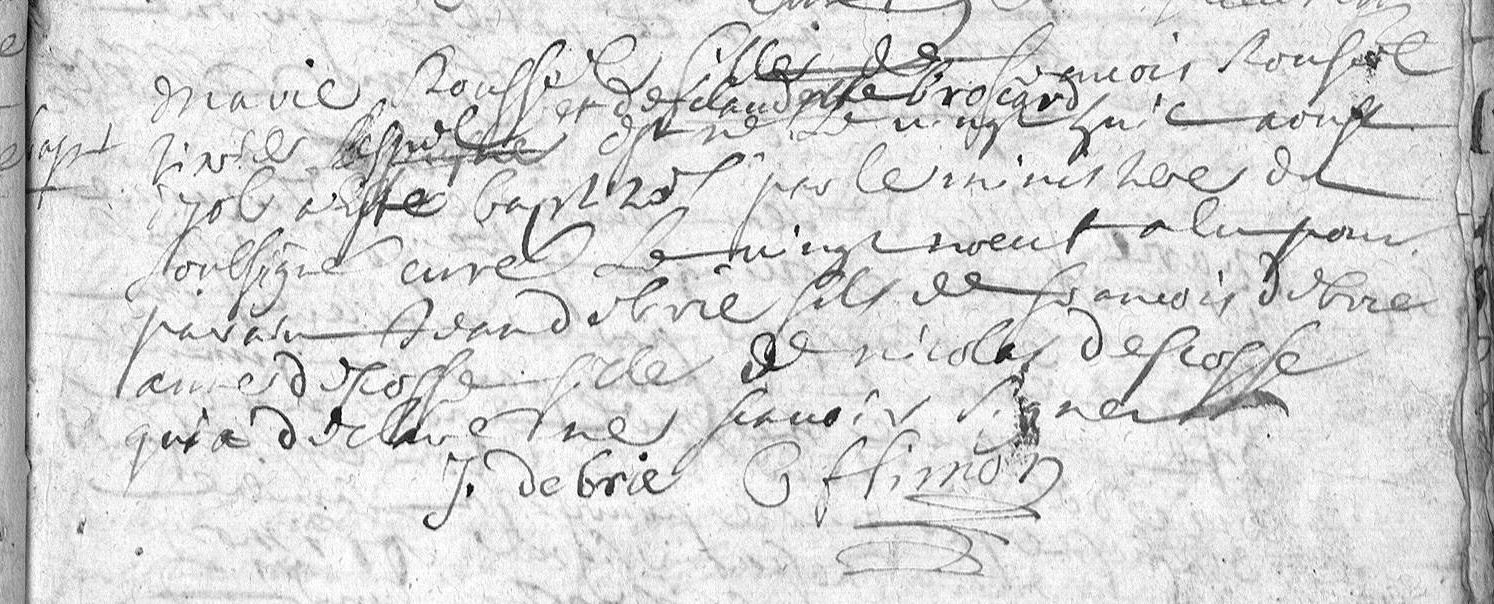 marie Roussel fille de francois Roussel
et de claudette brocard
est ne le vingt huict aoust
1701 a este baptizé par le ministere du
soubsigne curé le vingt neuf a lu pour
parain Jean debrie fils de francois debrie
anne descosse fille de nicolas descosse
qui a declare ne scauoir signer
J. debrie Simon
bapt